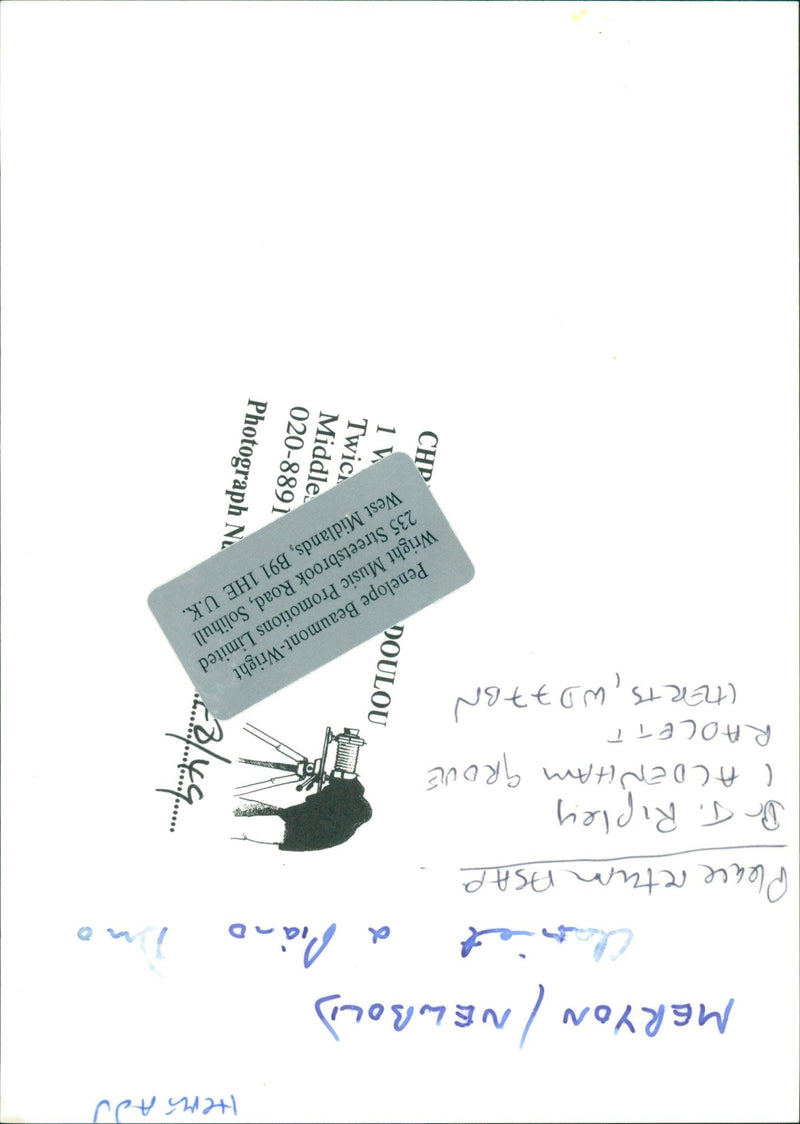 MERYON / NEWBOLD
Clarinet a Piano Duo
Please return ASAP
Dr T. Ripley
1 ALDENHAM GROVE
RADLETT
HERTS, WD7 7BN
Penelope Beaumont-Wright
Wright Music Promotions Limited
235 Streetsbrook Road, Solihull
West Midlands, B91 1HE U.K.
CHR DOULOU
1 W
Twick
Middles
020-8891
Photograph Nu